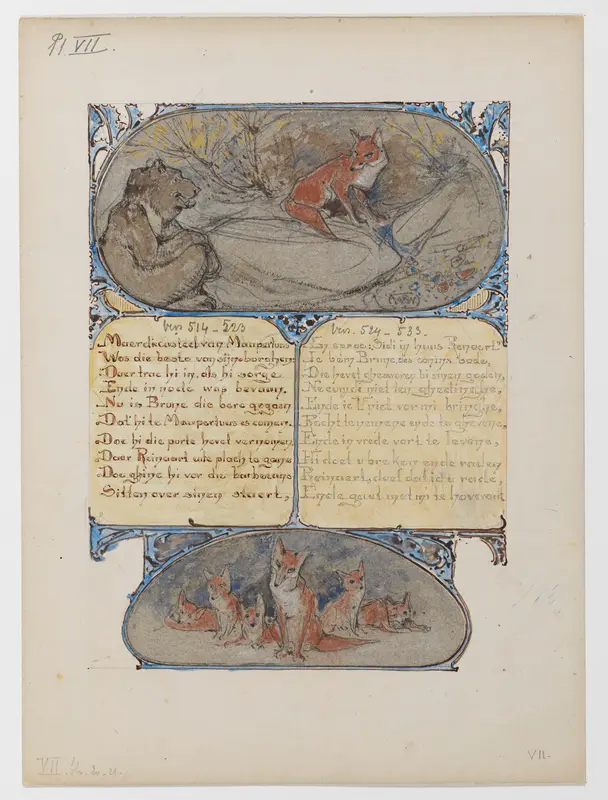 Pl VII.
vers 514 - 523
Maerdie casteel van Maupertuus
Was die beste van sijns borghen
Daer trac hi in, als hi sorge
Ende in node was bevaen.
Nu is Brune die bere gegaen
Dat hi te Maupertuus es comen.
Doe hi die porte hevet vernomen
Daer Reinaert ute plach te gane
Doe ghinc hi vor die barbecane
Sitten over sinen staert,
vers. 524 - 533.
En sprac, Sidi in huus Renaert
Ic bem Brune, des conins bode,
Die hevet ghesworen bi sinen gode,
Ne comdi niet ten ghedinghe,
Ende ic u niet vor mi bringhe,
Recht te nemene ende te ghevene,
Ende in vrede vort te levene,
Hi doet u breken ende raden
Reinaert, doet dat ic u rade,
Ende gaet met mi te hove
VII.
VII.